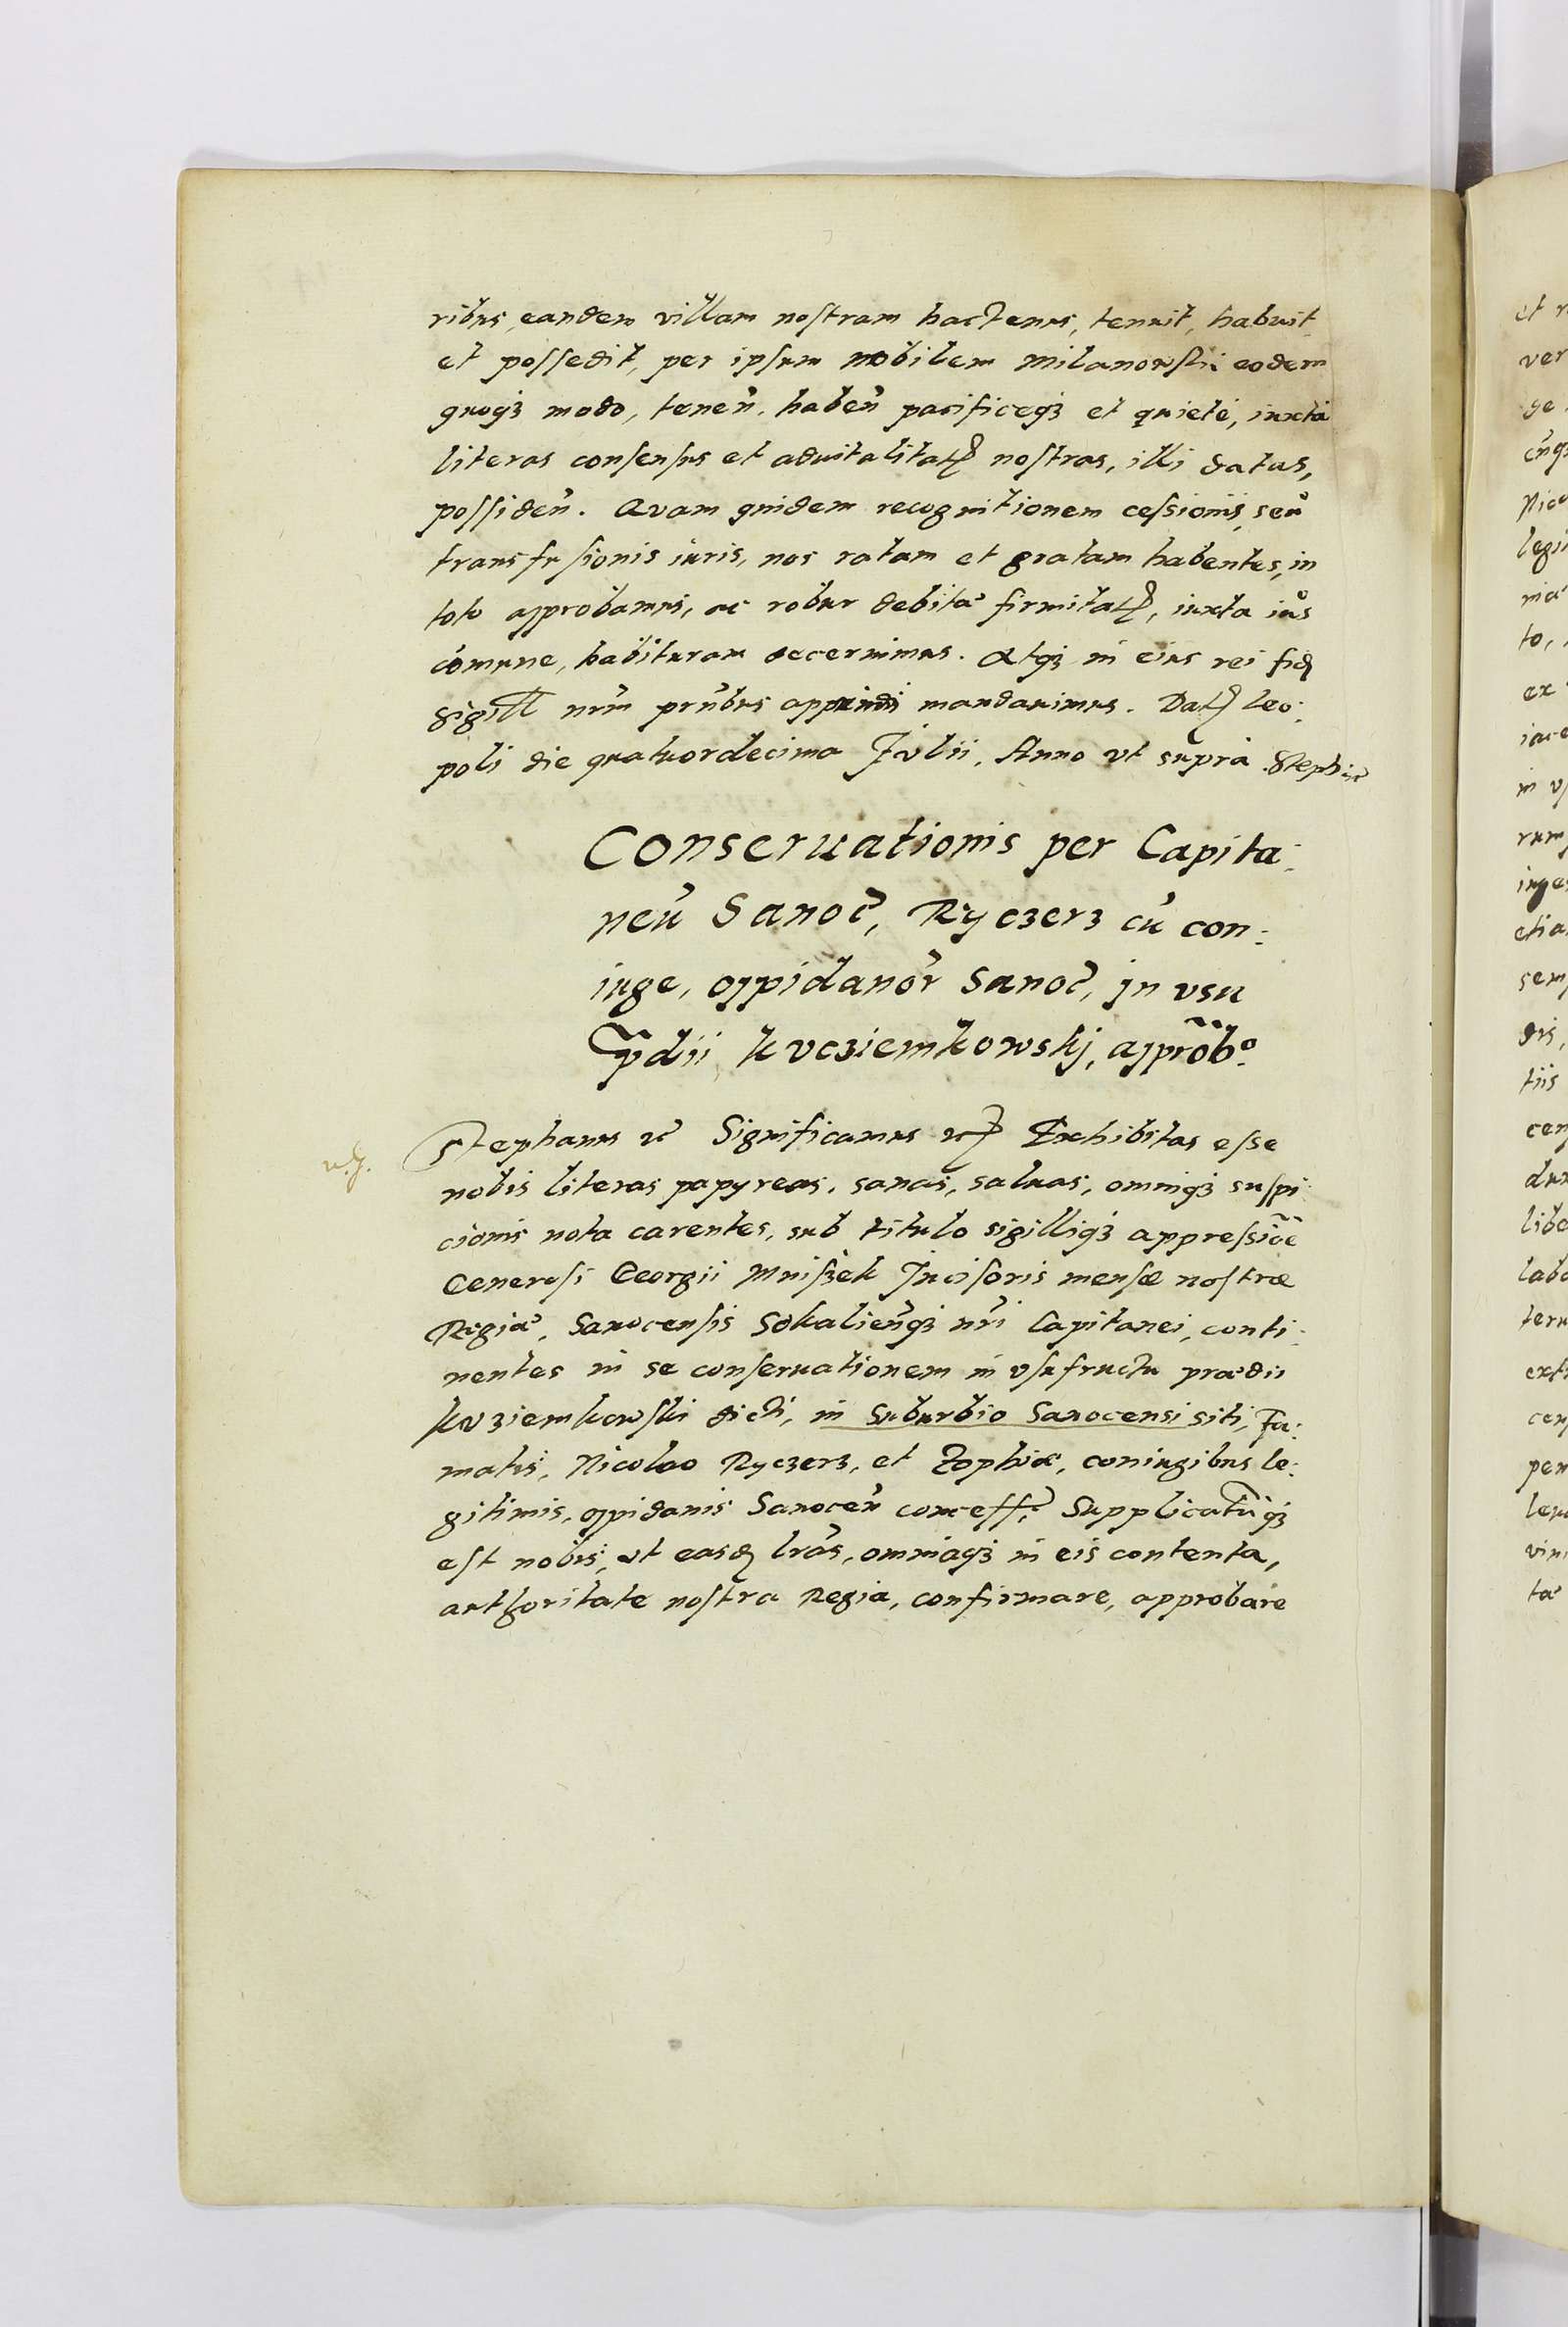 ribus, eandem villam nostram hactenus, tenuit, habuit
et possedit, per ipsum nobilem Milanowski eodem
quoqȝ modo, teneñ. habeñ pacificeqȝ et quietè, iuxta
literas consensus et aduitalitatꝭ nostras, illi datas,
possideñ. Quam quidem recognitionem cessionis, seu
transfusionis iuris, nos ratam et gratam habentes, in
toto approbamus, ac robur debitæ firmitatꝭ, iuxta ius
cõmune, habituram decernimus. Atqȝ in eius rei fidꝭ
sigill nr̃m pr̃ñbus appendi mandauimus. Datꝭ Leo:
poli die quatuordecima Julii, Anno vt supra
Conseruationis per Capita:
neũ Sanoc̃, Ryczerz cũ con:
iuge, oppidanor̃ Sanoc̃, in vsu
p̃dii kvcziemkowskj, appr̃obº
Stephanus etc̃ Significamus etcꝭ Exhibitas esse
nobis literas papyreas, sanas, saluas, omniqȝ suspi:
cionis nota carentes, sub titulo sigilliqȝ appressiõe
Generosi Georgii Mnisȝek Incisoris mensæ nostræ
Regiæ, Sanocensis Sokalieñqȝ nr̃i Capitanei, conti:
nentes in se conseruationem in vsufructu prædii
kvziemkowski dicti, in Suburbio Sanocensi siti, Fa:
matis, Nicolao Ryczerz, et Zophiæ, coniugibus le:
gitimis, oppidanis Sanoceñ concess̃. Supplicatũqȝ
est nobis, vt easdꝭ lr̃as, omniaqȝ in eis contenta,
authoritate nostra Regia, confirmare, approbare